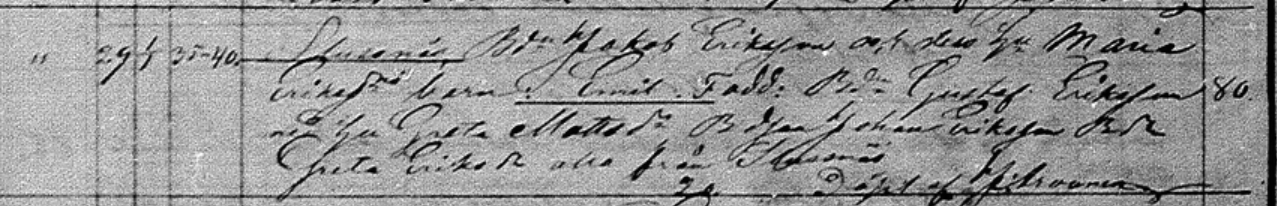 " 29 1 35-40. Stursnäs, Bdn Jakob Eriksson och dess Hu Maria
Eriksdrs barn: Emil. Fadd: Bdn Gustaf Eriksson 80.
Hu Greta Mattsdr Bdsn Johan Eriksson Bdr
Greta Eriksdr alla från
Döpt af